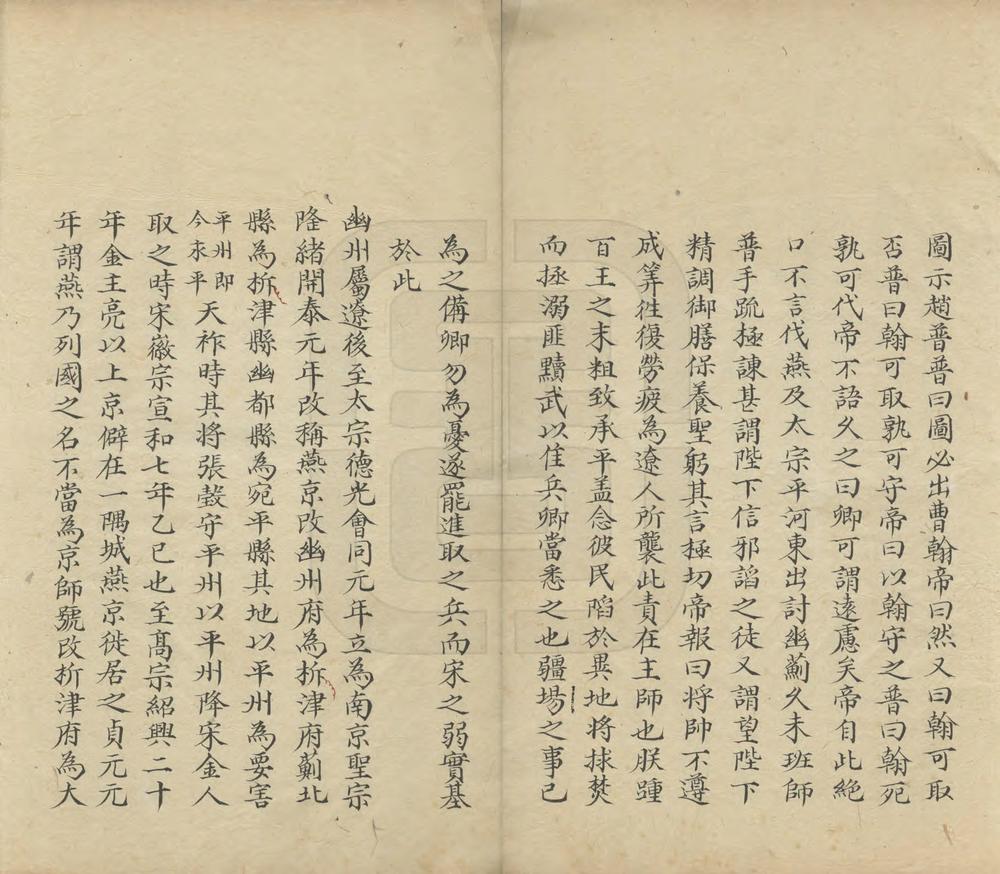 圖示趙普普曰圖必出曹翰帝曰然又曰翰可取
否普曰翰可取孰可守帝曰以翰守之普曰翰死
孰可代帝不語久之曰卿可謂遠慮矣帝自此絶
口不言伐燕及太宗平河東出討幽薊久未班師
普手疏極諫甚謂陛下信邪謟之徒又謂望陛下
精調御膳保養聖躬其言極切帝報曰將帥不遵
成筭徃復勞疲為遼人所襲此責在主師也朕踵
百王之末粗致承平盖念彼民陷於異地將拯焚
而拯溺匪黷武以佳兵卿當悉之也疆場之事已
為之備卿勿為憂遂罷進取之兵而宋之弱實基
於此
幽州屬遼後至太宗德光會同元年立為南京聖宗
隆緒開泰元年改稱燕京改幽州府為折津府薊北
縣為折津縣幽都縣為宛平縣其地以平州為要害
平州即今永平天祚時其將張瑴守平州以平州降宋金人
取之時宋徽宗宣和七年乙巳也至髙宗紹興二十
年金主亮以上京僻在一隅城燕京徙居之貞元元
年謂燕乃列國之名不當為京師號改折津府為大